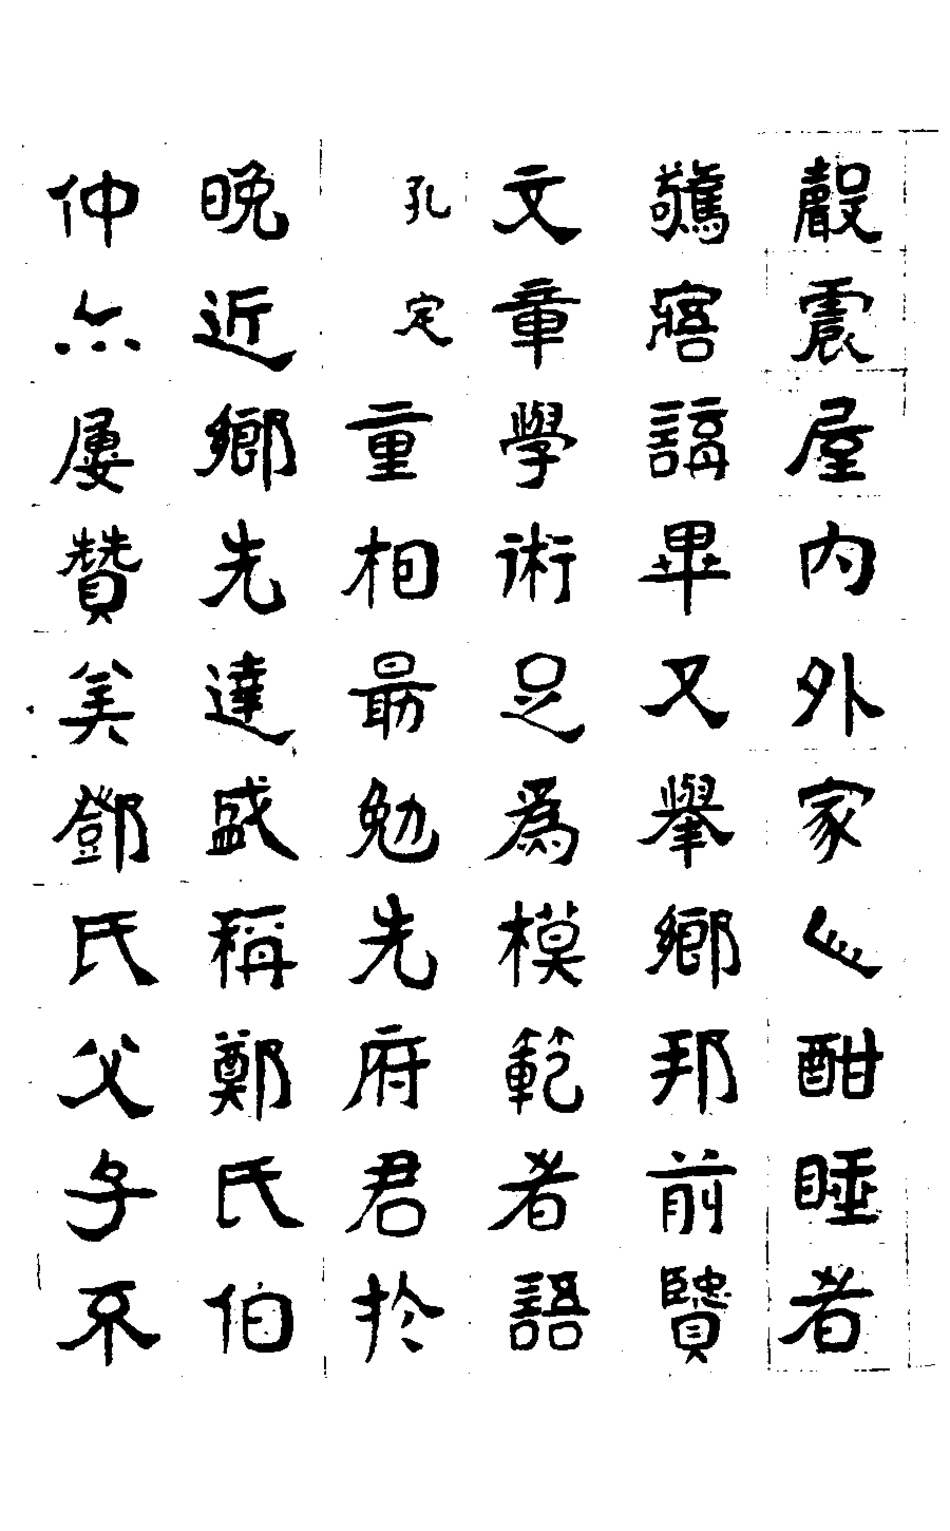 聲震屋内外家人酣睡者
驚寤誦畢又舉鄉邦前賢
文章學術足為模範者語
孔定重相最勉先府君於
晚近鄉先達盛稱鄭氏伯
仲亦屢贊美鄧氏父子不